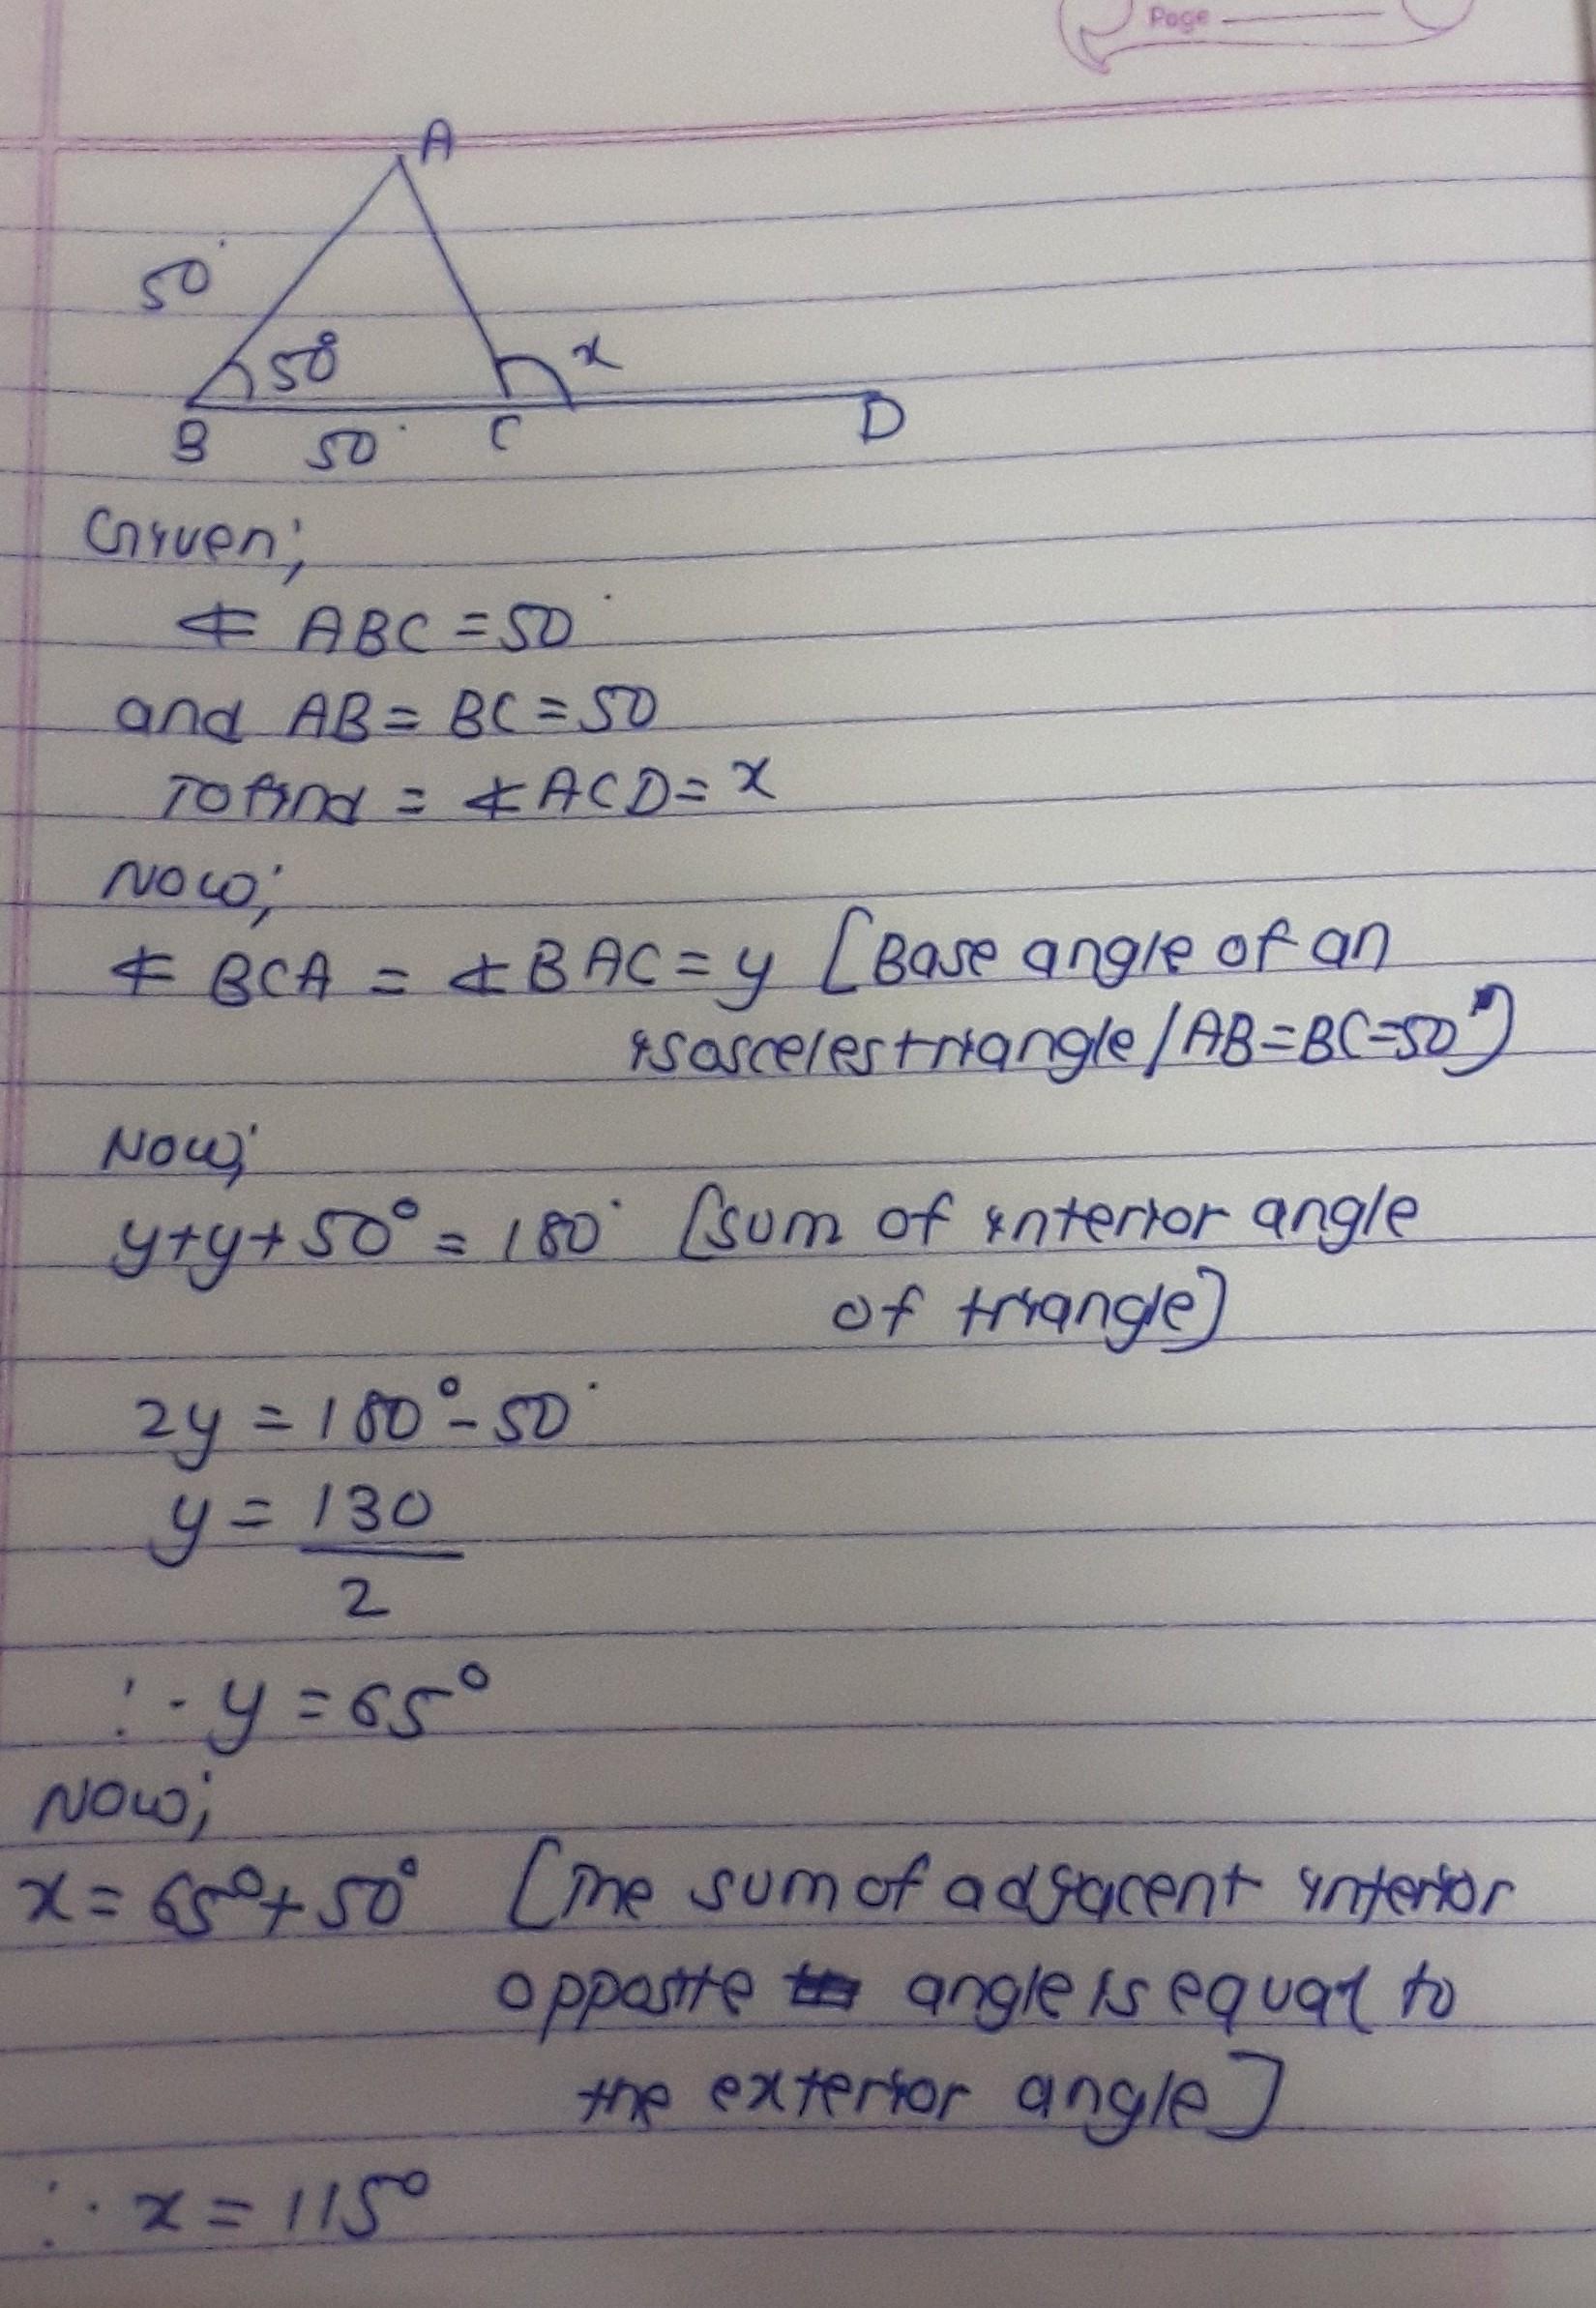 Page
A
50
50°
x
B
50
C
D
Given;
∡ ABC = 50
and AB = BC = 50
To find = ∡ ACD = x
Now;
∡ BCA = ∡ BAC = y [Base angle of an
isosceles triangle / AB = BC = 50)
Now;
y+y+50° = 180 [sum of interior angle
of triangle]
2y = 180° - 50
y = 130
2
∴ y = 65°
Now;
x = 65° + 50° [The sum of adjacent interior
opposite angle is equal to
the exterior angle]
∴ x = 115°